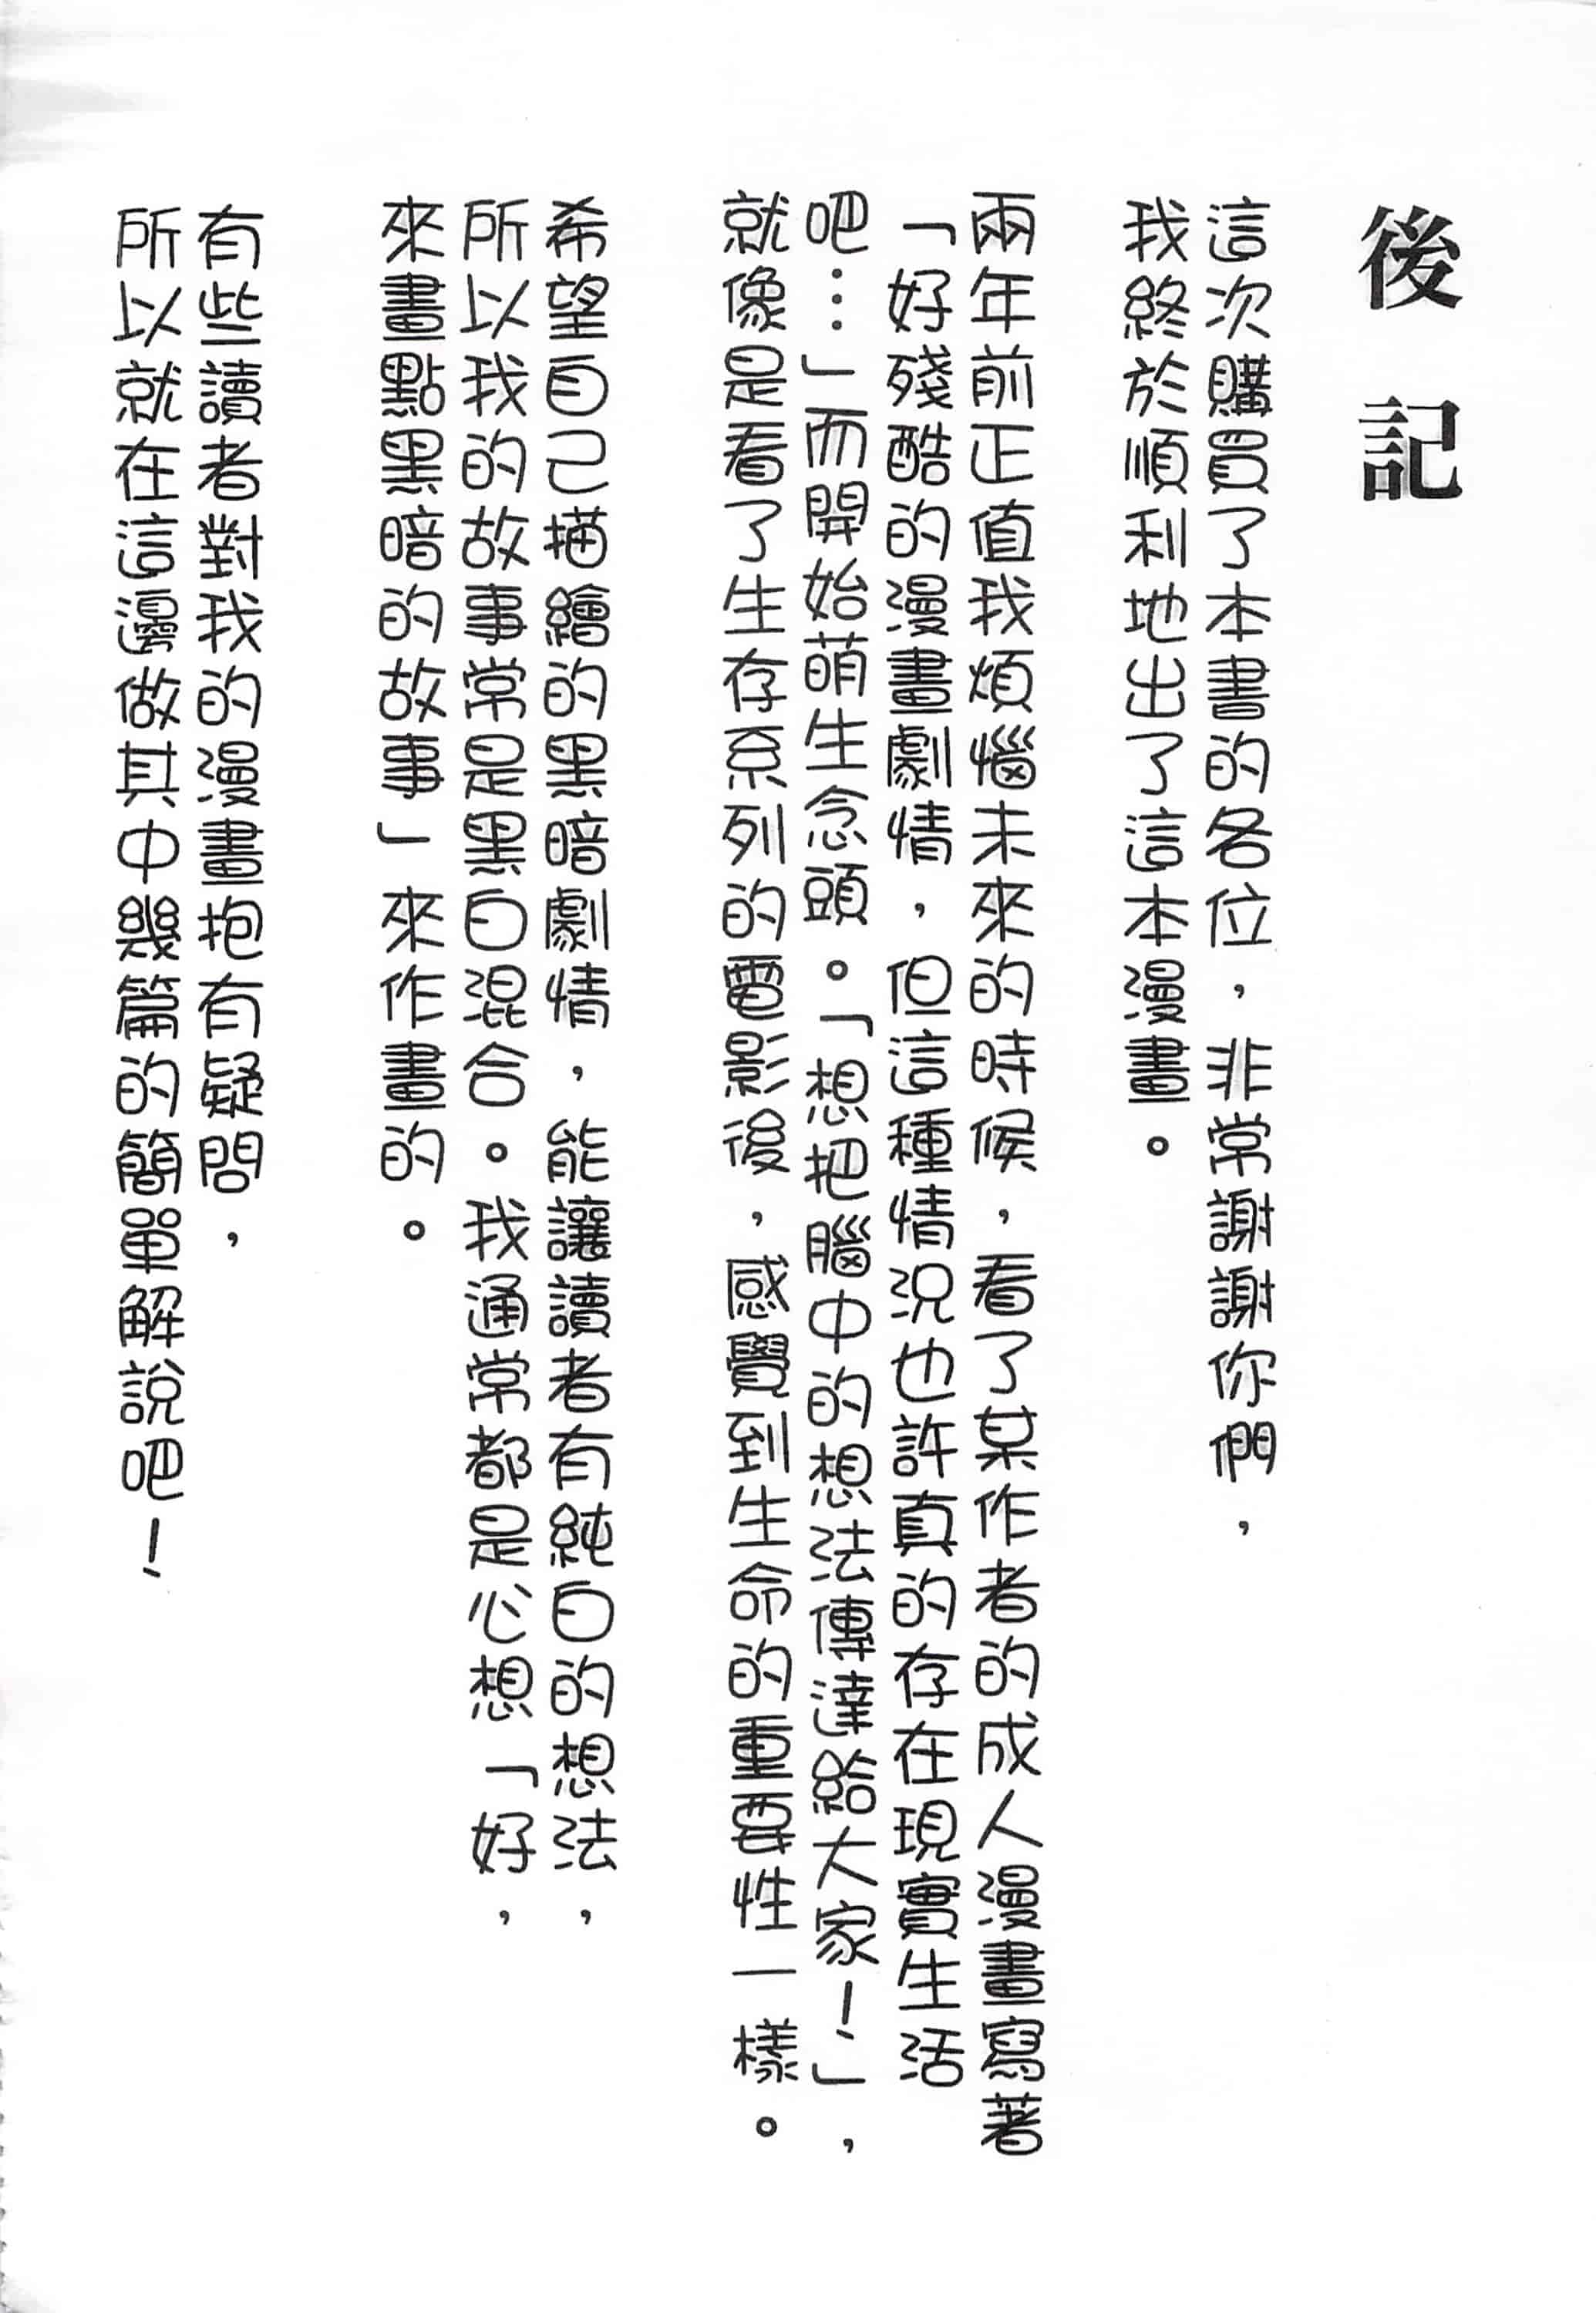 後記
這次購買了本書的各位，非常謝謝你們，
我終於順利地出了這本漫畫。
兩年前正值我煩惱未來的時候，看了某作者的成人漫畫寫著
「好殘酷的漫畫劇情，但這種情況也許真的存在現實生活
吧…」而開始萌生念頭。「想把腦中的想法傳達給大家！」，
就像是看了生存系列的電影後，感覺到生命的重要性一樣。
希望自己描繪的黑暗劇情，能讓讀者有純白的想法，
所以我的故事常是黑白混合。我通常都是心想「好，
來畫點黑暗的故事」來作畫的。
有些讀者對我的漫畫抱有疑問，
所以就在這邊做其中幾篇的簡單解說吧！